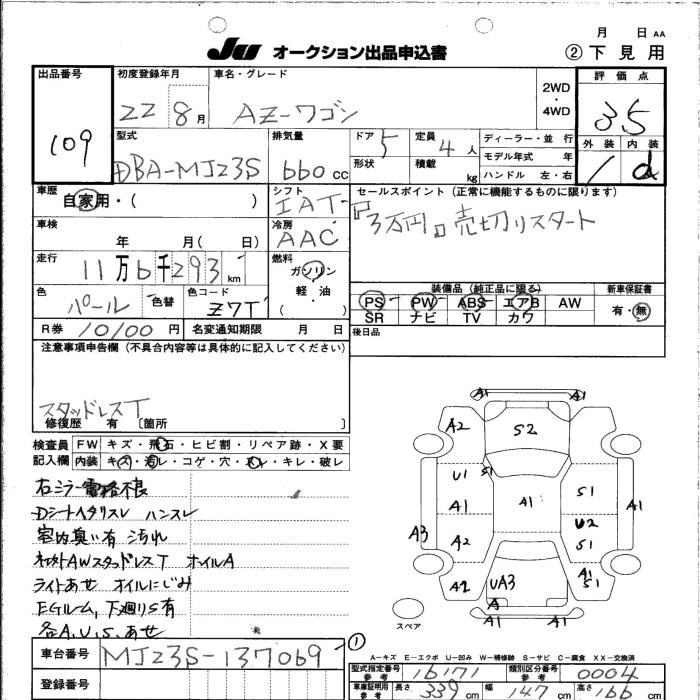 月 日 AA
JU オークション出品申込書 ②下見用
出品番号 初度登録年月 車名・グレード 2WD・4WD 評価点
109 22 8月 AZ-ワゴン 35
型式 排気量 ドア 5 定員 4人 ディーラー・並行 外装 内装
DBA-MJ23S 660 cc 形状 積載 kg モデル年式 年 / d
ハンドル 左・右
車歴 自家用・( ) シフト IAT セールスポイント (正常に機能するものに限ります)
『3万円』売切りスタート
車検 年 月( 日) 冷房 AAC
走行 11万6千293km 燃料 ガソリン 軽・油 ( )
装備品 (純正品に限る) 新車保証書
色 パール 色替 色コード Z7T
PS PW ABS エアB AW 有・無
SR ナビ TV カワ
R券 10100円 名変通知期限 月 日 後日品
注意事項申告欄 (不具合内容等は具体的に記入してください)
スタッドレスT
修復歴 有 〔箇所 〕
検査員 FW キズ・飛石・ヒビ割・リペア跡・X要
記入欄 内装 キズ・汚レ・コゲ・穴・スレ・キレ・破レ
右ミラー電格不良
Dシートヘタリスレ ハンスレ
室内臭い有 汚れ
社外AWスタッドレスT ホイルA
ライトあせ オイルにじみ
EGルーム,下廻りS有
各A,U,S,あせ
A1 A1
A2 S2
U1 S1 S1
A1 A1 A1
U2
A3 A2 S1
A1
A2 UA3 S1
A
A1 A1
スペア
①
A-キズ E-エクボ U-凹み W-補修跡 S-サビ C-腐食 XX-交換済
車台番号 MJ23S-137069 型式指定番号 参考 16171 類別区分番号 参考 0004
登録番号 車庫証明用 参考 長さ 339cm 幅 147cm 高さ 166cm